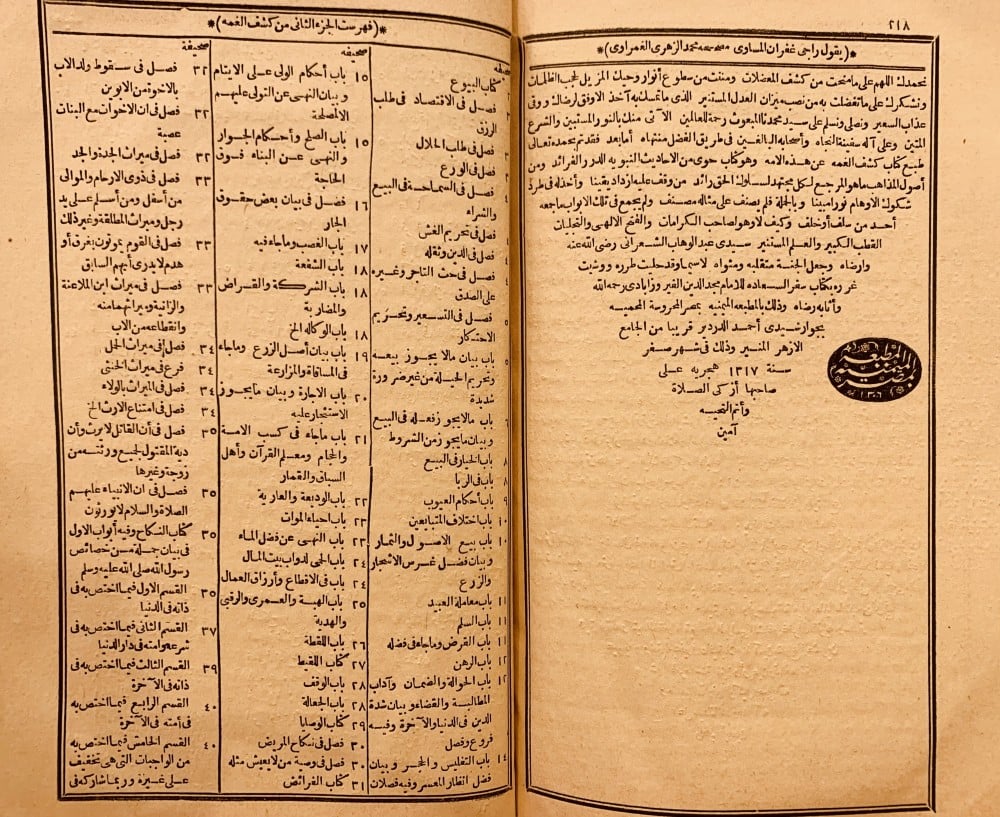 ٢١٨
*(يقول راجى غفران المساوى مصححه محمد الزهرى الغمراوى)*
نحمدك اللهم على ما منحت من كشف المعضلات ومننت من سطوع أنوار وحيك المزيل لحجب الظلمات
ونشكرك على ما تفضلت به من نصب ميزان العدل المستنير الذى ما تمسك به آخذ الاوفق لرضاك ووقى
عذاب السعير ونصلى ونسلم على سيدنا محمد المبعوث رحمة للعالمين الآتى منك بالنور المستبين والشرع
المتين وعلى آله سفينة النجاه وأصحابه البالغين فى طريق الفضل منتهاه أما بعد فقد تم بحمده تعالى
طبع كتاب كشف الغمه عن هذه الامه وهو كتاب حوى من الاحاديث النبويه الدرر والفرائد ومن
أصول المذاهب ما هو المرجع لكل مجتهد لسلوك الحق رائد من وقف عليه ازداد يقينا وأخذ له فى طرد
شكوك الاوهام نورا مبينا وبالجملة فلم يصنف على مثاله مصنف ولم يجمع فى تلك الابواب ما جمعه
أحد من سلف أو خلف وكيف لا وهو لصاحب الكرامات والفتح الالهى والتجليات
القطب الكبير والعلم المستنير سيدى عبد الوهاب الشعرانى رضى الله عنه
وارضاه وجعل الجنة متقلبه ومثواه لاسيما وقد حليت طرره ووشيت
غرره بكتاب سفر السعاده للامام مجد الدين الفيروزابادى رحمه الله
وأثابه رضاه وذلك بالمطبعه الميمنيه بمصر المحروسة المحميه
بجوار سيدى أحمد الدردير قريبا من الجامع
الازهر المنير وذلك فى شهر صفر
سنة ١٣١٧ هجريه على
صاحبها أزكى الصلاة
وأتم التحيه
آمين
المطبعة
الميمنية
بمصر
١٣٠٦
*(فهرست الجزء الثانى من كشف الغمه)*
صحيفه
كتاب البيوع
فصل فى الاقتصاد فى طلب
الرزق
فصل فى طلب الحلال
فصل فى الورع
فصل فى السماحة فى البيع
والشراء
فصل فى تحريم الغش
فصل فى الدين وثقله
٤ فصل فى حث التاجر وغيره
على الصدق
٥ فصل فى التسعير وتحريم
الاحتكار
٥ باب بيان ما لا يجوز بيعه
وتحريم الحيلة من غير ضرورة
شديدة
٦ باب ما لا يجوز فعله فى البيع
وبيان ما يجوز من الشروط
٨ باب الخيار فى البيع
٨ باب فى الربا
٩ باب أحكام العيوب
١٠ باب اختلاف المتبايعين
١٠ باب بيع الاصول والثمار
وبيان فضل غرس الاشجار
والزرع
١١ باب معاملة العبيد
١١ باب السلم
١١ باب القرض وما جاء فى فضله
١٢ باب الرهن
١٢ باب الحوالة والضمان وآداب
المطالبة والقضاء وبيان شدة
الدين فى الدنيا والآخرة وفيه
فروع وفصل
١٤ باب التفليس والحجر وبيان
فضل انظار المعسر وفيه فصلان
صحيفه
١٥ باب أحكام الولى على الايتام
وبيان النهى عن التولى عليهم
الا لمصلحة
١٥ باب الصلح وأحكام الجوار
والنهى عن البناء فوق
الحاجة
١٦ فصل فى بيان بعض حقوق
الجار
١٧ باب الغصب وما جاء فيه
١٨ باب الشفعة
١٨ باب الشركة والقراض
والمضاربة
١٨ باب الوكاله الخ
١٩ باب بيان أصل الزرع وما جاء
فى المساقاة والمزارعة
٢٠ باب الاجارة وبيان ما يجوز
الاستئجار عليه
٢١ باب ما جاء فى كسب الامة
والحجام ومعلم القرآن وأهل
السباق والقمار
٢٢ باب الوديعة والعارية
٢٣ باب احياء الموات
٢٣ باب النهى عن فضل الماء
٢٤ باب الحمى لدواب بيت المال
٢٤ باب فى الاقطاع وأرزاق العمال
٢٥ باب الهبة والعمرى والرقبى
والهدية
٢٦ باب اللقطة
٢٧ كتاب اللقيط
٢٨ باب الوقف
٢٨ باب الجعالة
٢٩ كتاب الوصايا
٣٠ فصل فى نكاح المريض
٣٠ فصل فى وصية من لا يعيش مثله
٣١ كتاب الفرائض
صحيفة
٣٢ فصل فى سقوط ولد الاب
بالاخوة من الابوين
٣٢ فصل فى ان الاخوات مع البنات
عصبة
٣٢ فصل فى ميراث الجدة والجد
٣٣ فصل فى ذوى الارحام والموالى
من أسفل ومن أسلم على يد
رجل وميراث المطلقة وغير ذلك
٣٣ فصل فى القوم يموتون بغرق أو
هدم لا يدرى أيهم السابق
٣٣ فصل فى ميراث ابن الملاعنة
والزانية وميراثهما منه
وانقطاعه من الاب
٣٤ فصل فى ميراث الحمل
٣٤ فرع فى ميراث الخنثى
٣٤ فصل فى الميراث بالولاء
٣٤ فصل فى امتناع الارث الخ
٣٥ فصل فى أن القاتل لا يرث وأن
دية المقتول لجميع ورثته من
زوجة وغيرها
٣٥ فصل فى ان الانبياء عليهم
الصلاة والسلام لا يورثون
٣٥ كتاب النكاح وفيه أبواب الاول
فى بيان جملة من خصائص
رسول الله صلى الله عليه وسلم
٣٥ القسم الاول فيما اختص به فى
ذاته فى الدنيا
٣٧ القسم الثانى فيما اختص به فى
شرعه وامته فى دار الدنيا
٣٩ القسم الثالث فيما اختص به فى
ذاته فى الآخرة
٤٠ القسم الرابع فيما اختص به
فى أمته فى الآخرة
٤٠ القسم الخامس فيما اختص به
من الواجبات التى هى تخفيف
على غيره وربما شاركه فى